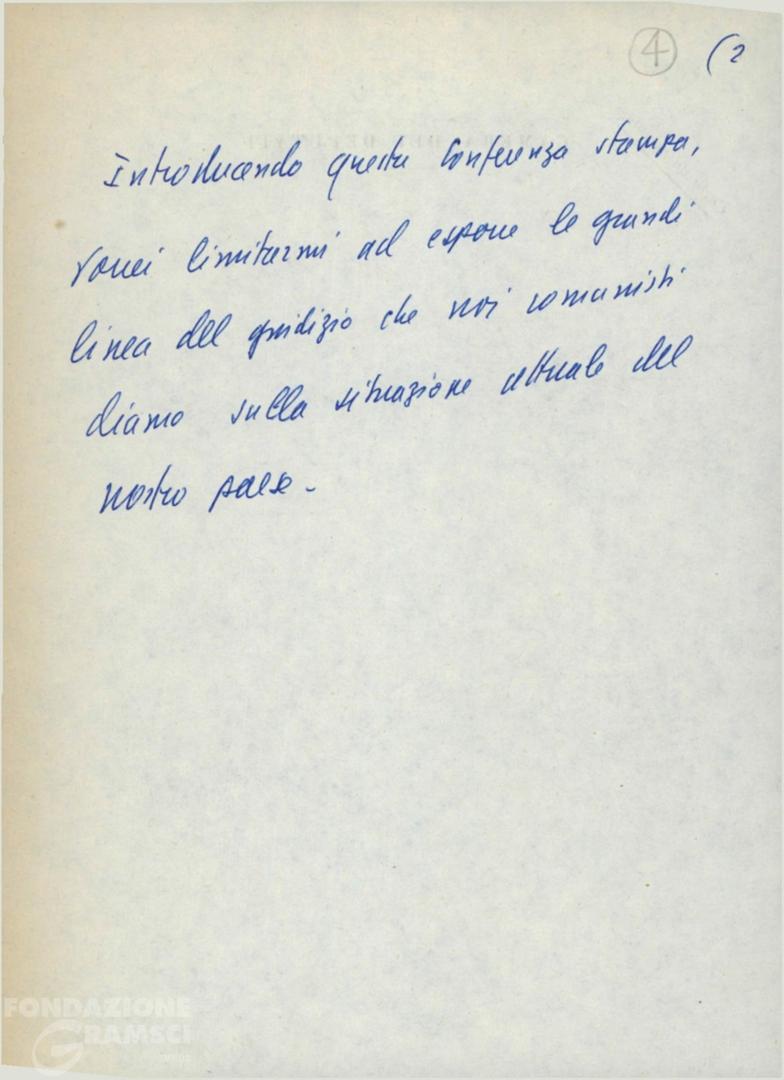 4 (2
Introducendo questa conferenza stampa,
vorrei limitarmi ad esporre le grandi
linea del giudizio che noi comunisti
diamo sulla situazione attuale del
nostro paese -
FONDAZIONE
GRAMSCI